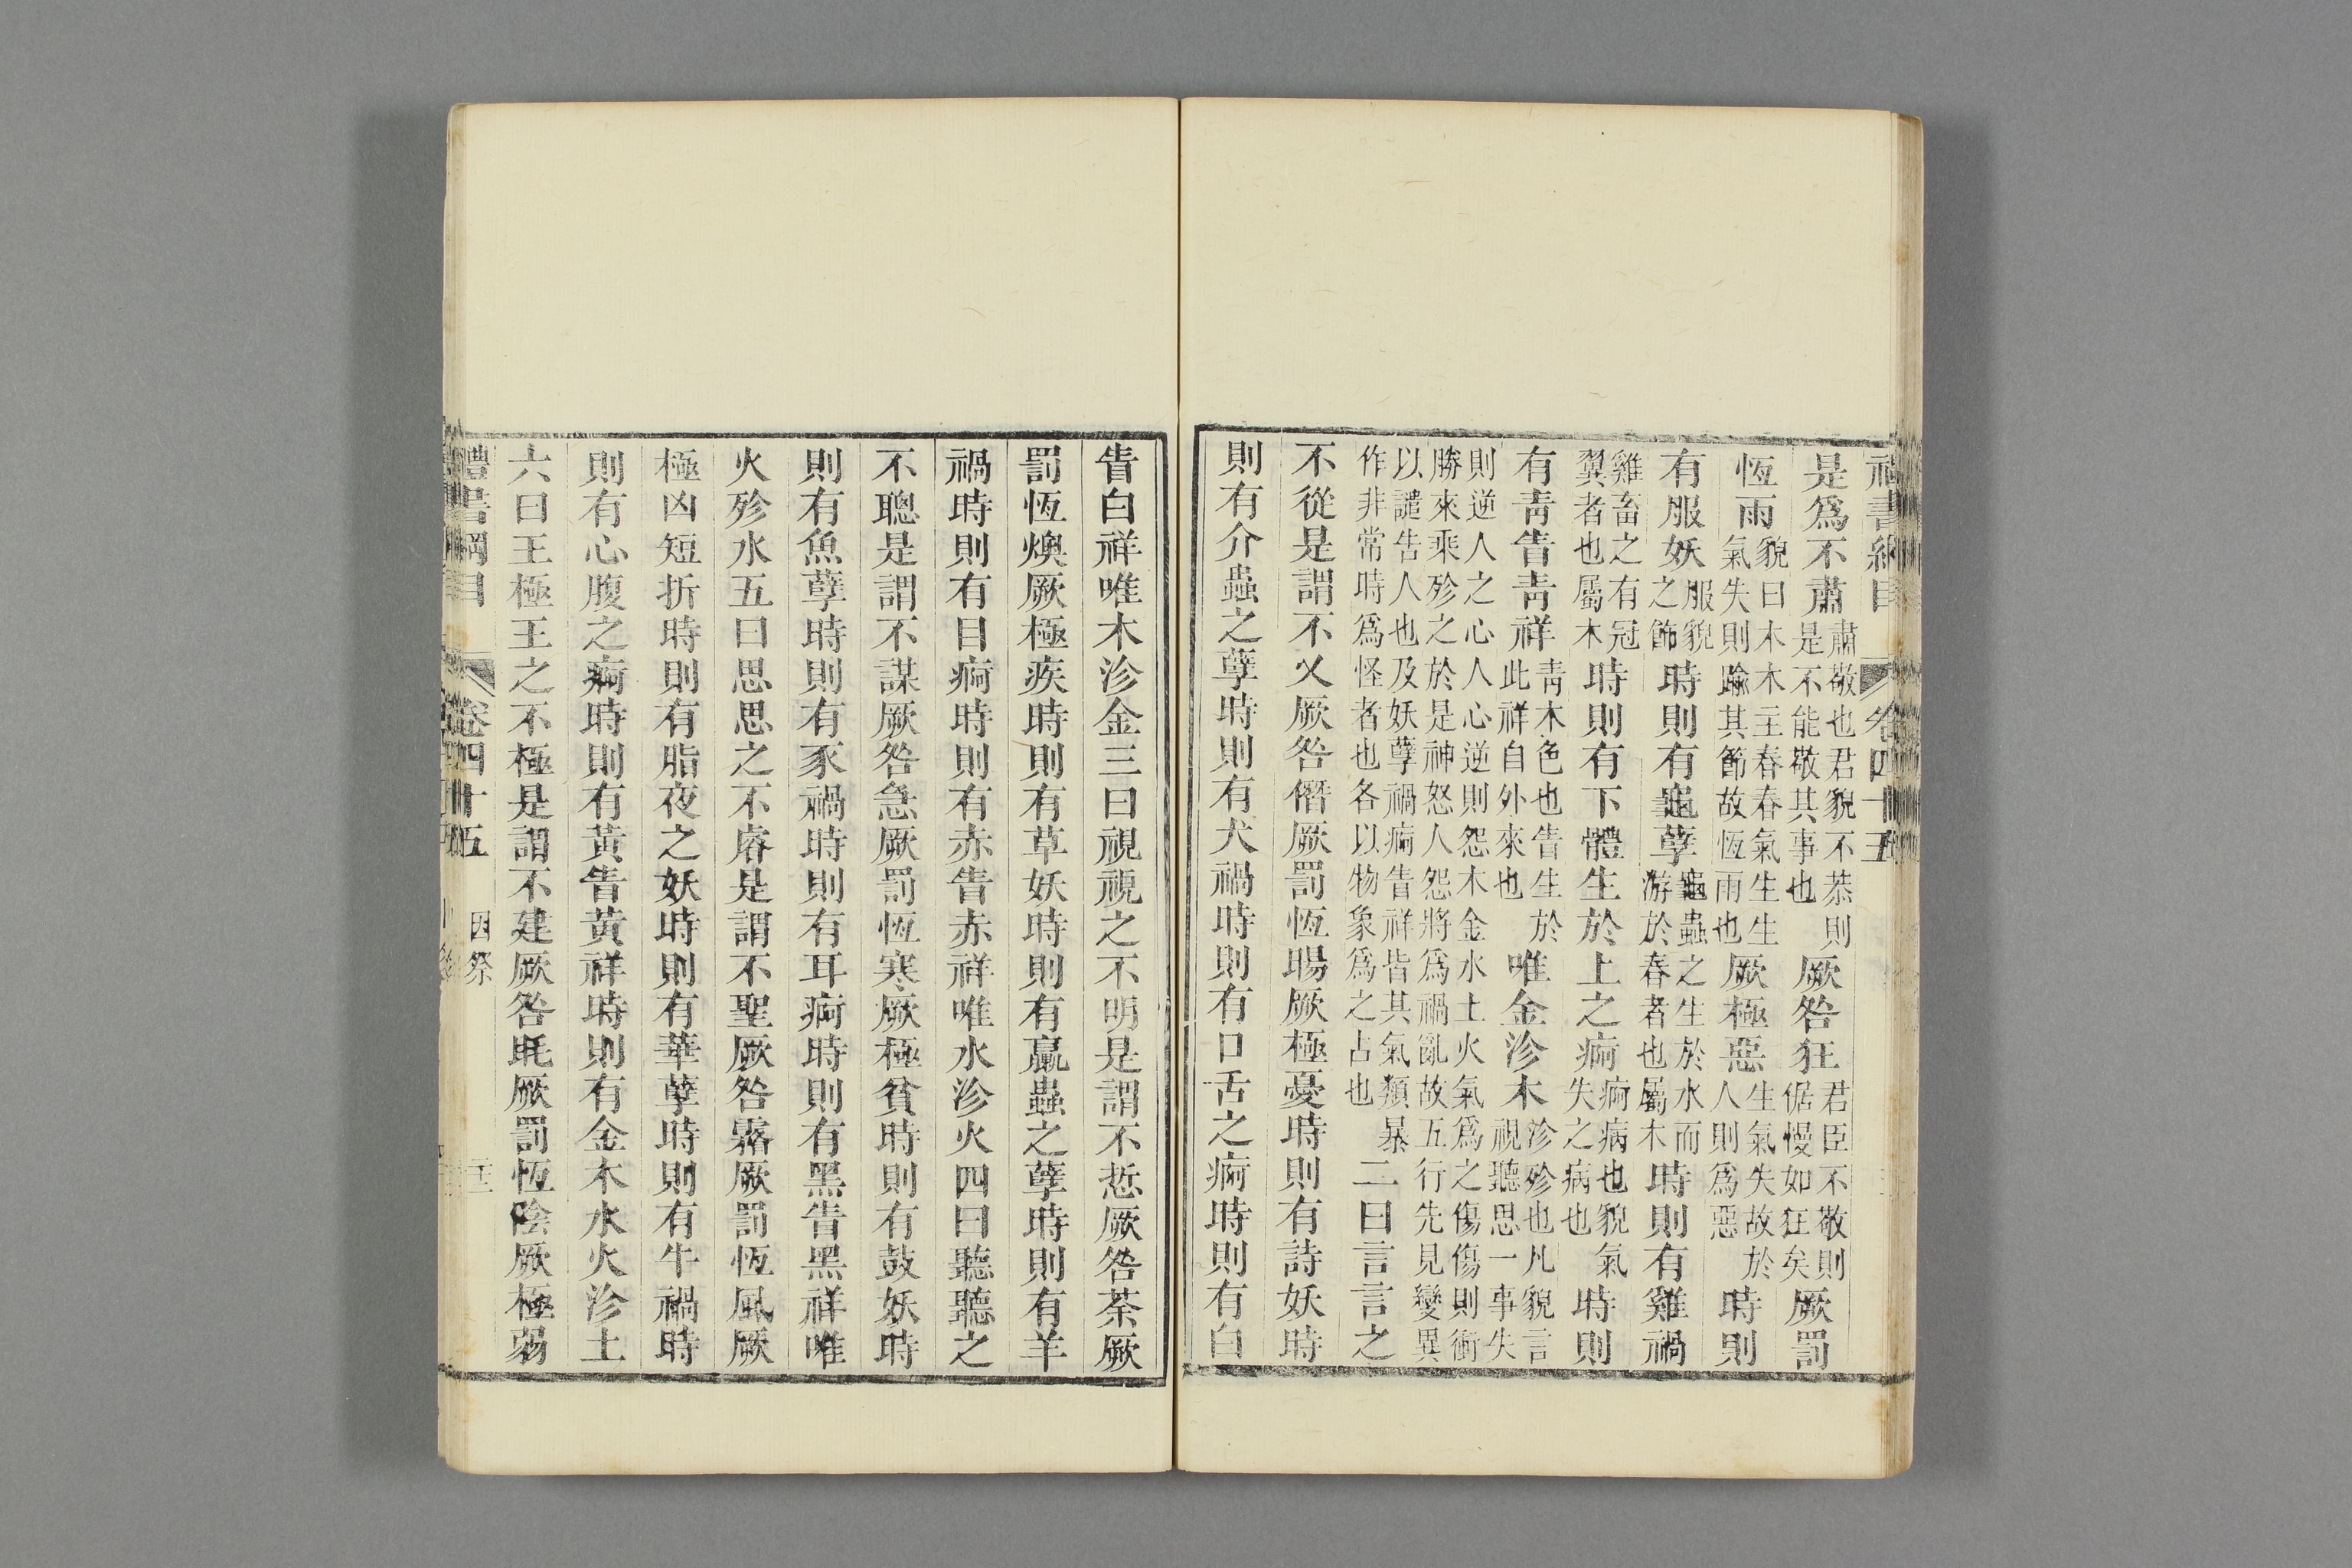 禮書綱目 卷四十五
是爲不肅肅敬也君貌不恭則是不能敬其事也厥咎狂君臣不敬則倨慢如狂矣厥罰
恆雨貌曰木木主春春氣生生氣失則踰其節故恆雨也厥極惡生氣失故於人則爲惡時則
有服妖服貌之飾時則有龜孽龜蟲之生於水而游於春者也屬木時則有雞禍
雞畜之有冠翼者也屬木時則有下體生於上之痾痾病也貌氣失之病也時則
有青眚青祥青木色也眚生於此祥自外來也唯金沴木沴殄也凡貌言視聽思一事失
則逆人之心人心逆則怨木金水土火氣爲之傷傷則衝勝來乘殄之於是神怒人怨將爲禍亂故五行先見變異
以譴告人也及妖孽禍痾眚祥皆其氣類暴作非常時爲怪者也各以物象爲之占也二曰言言之
不從是謂不乂厥咎僭厥罰恆暘厥極憂時則有詩妖時
則有介蟲之孽時則有犬禍時則有口舌之痾時則有白
眚白祥唯木沴金三曰視視之不明是謂不悊厥咎荼厥
罰恆燠厥極疾時則有草妖時則有蠃蟲之孽時則有羊
禍時則有目痾時則有赤眚赤祥唯水沴火四曰聽聽之
不聰是謂不謀厥咎急厥罰恆寒厥極貧時則有鼓妖時
則有魚孽時則有豕禍時則有耳痾時則有黑眚黑祥唯
火殄水五曰思思之不睿是謂不聖厥咎霿厥罰恆風厥
極凶短折時則有脂夜之妖時則有華孽時則有牛禍時
則有心腹之痾時則有黃眚黃祥時則有金木水火沴土
六曰王極王之不極是謂不建厥咎眊厥罰恆陰厥極弱
禮書綱目 卷四十五 因祭